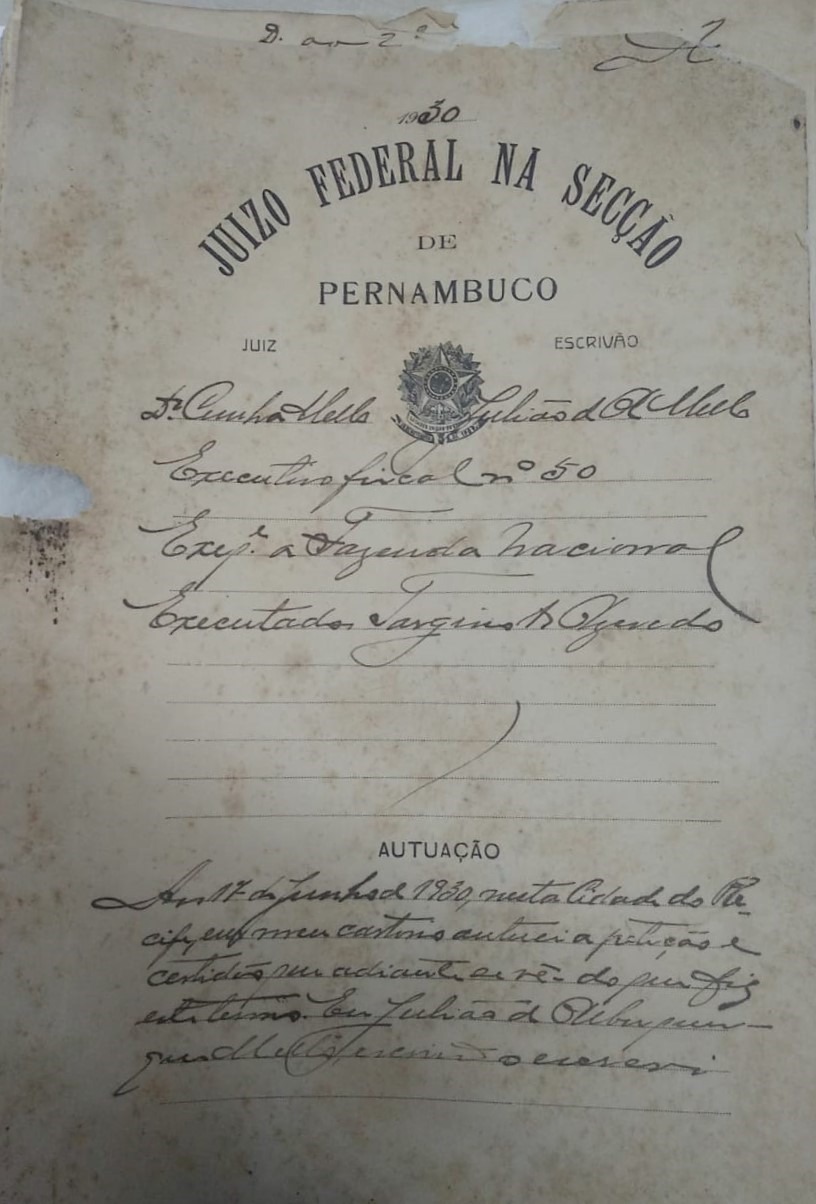 D. ao 2º
1930
JUIZO FEDERAL NA SECÇÃO
DE
PERNAMBUCO
JUIZ
ESCRIVÃO
Dr. Cunha Mello
Julião d A Mello
Executivo fiscal nº 50
Exeq.e a Fazenda Nacional
Executado Targino A Azevedo
AUTUAÇÃO
Aos 17 de Junho d 1930, nesta Cidade do Re-
cife, em meu cartorio autuei a petição e
certidão que adiante se vê - do que fiz
este termo. Eu Julião d Albuquer-
que Mello escrivão o escrevi